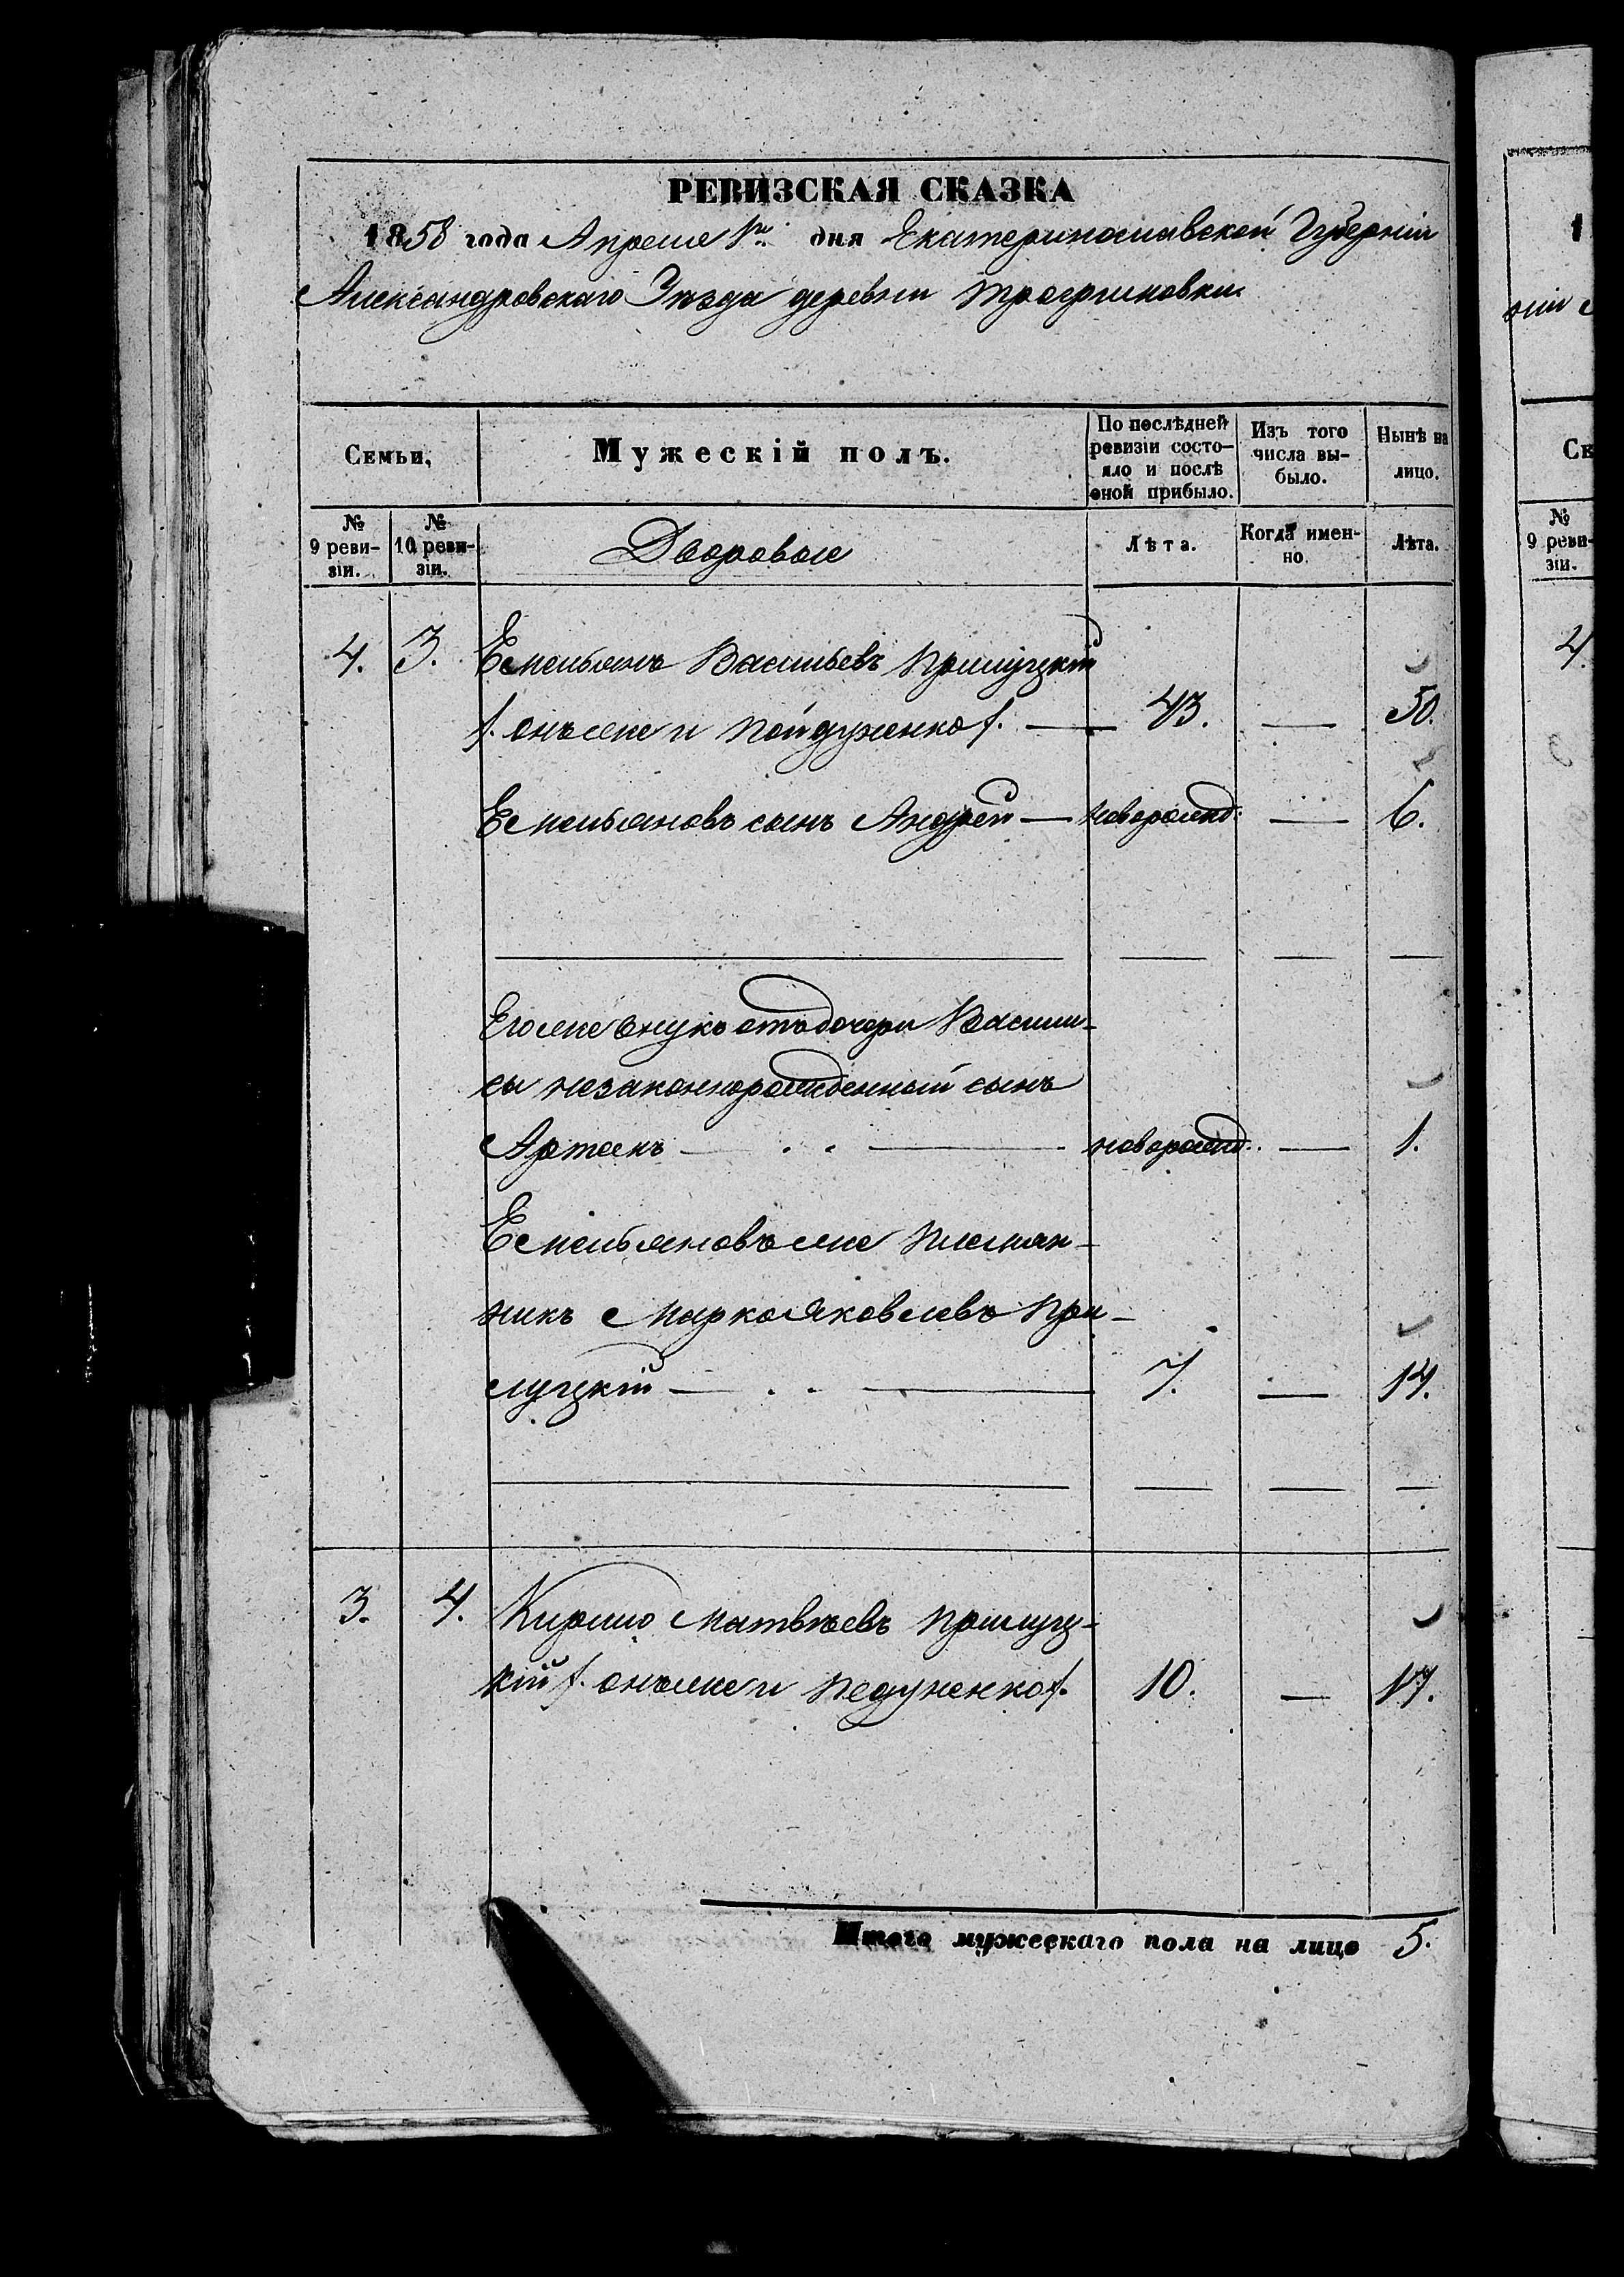 РЕВИЗСКАЯ СКАЗКА
1858 года Апреля 1го дня Екатеринославской Губерніи
Александровскаго Уѣзда деревни Трофимовки
Семьи, Мужескій полъ. По послѣдней ревизіи состояло и послѣ оной прибыло. Изъ того числа выбыло. Нынѣ на лицо.
№ 9 ревизіи. № 10 ревизіи. Дворовые Лѣта. Когда именно. Лѣта.
4. 3. Емельянъ Васильевъ Прилуцкій
/. онъ же и Пойдуженко /. — 43. — 50.
Емельяновъ сынъ Андрей — новорожд: — 6.
Его же внукъ отъ дочери Васили-
сы незаконнорожденный сынъ
Артемъ — новорожд. — 1.
Емельяновъ же племян-
никъ Марко Яковлевъ При-
луцкій — 7. — 14.
3. 4. Кирило Матвѣевъ Прилуц-
кій /. онъ же и Педуженко /. 10. — 17.
Итого мужескаго пола на лицо 5.
1
ніи
Се
№
9 реви-
зіи.
4.